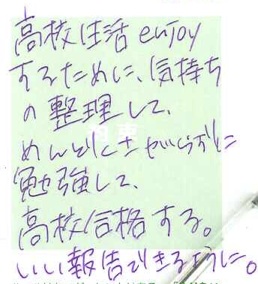 高校生活enjoy
するために、気持ち
の整理して、
めんどくさがらずに
勉強して、
高校合格する。
いい報告できるように。